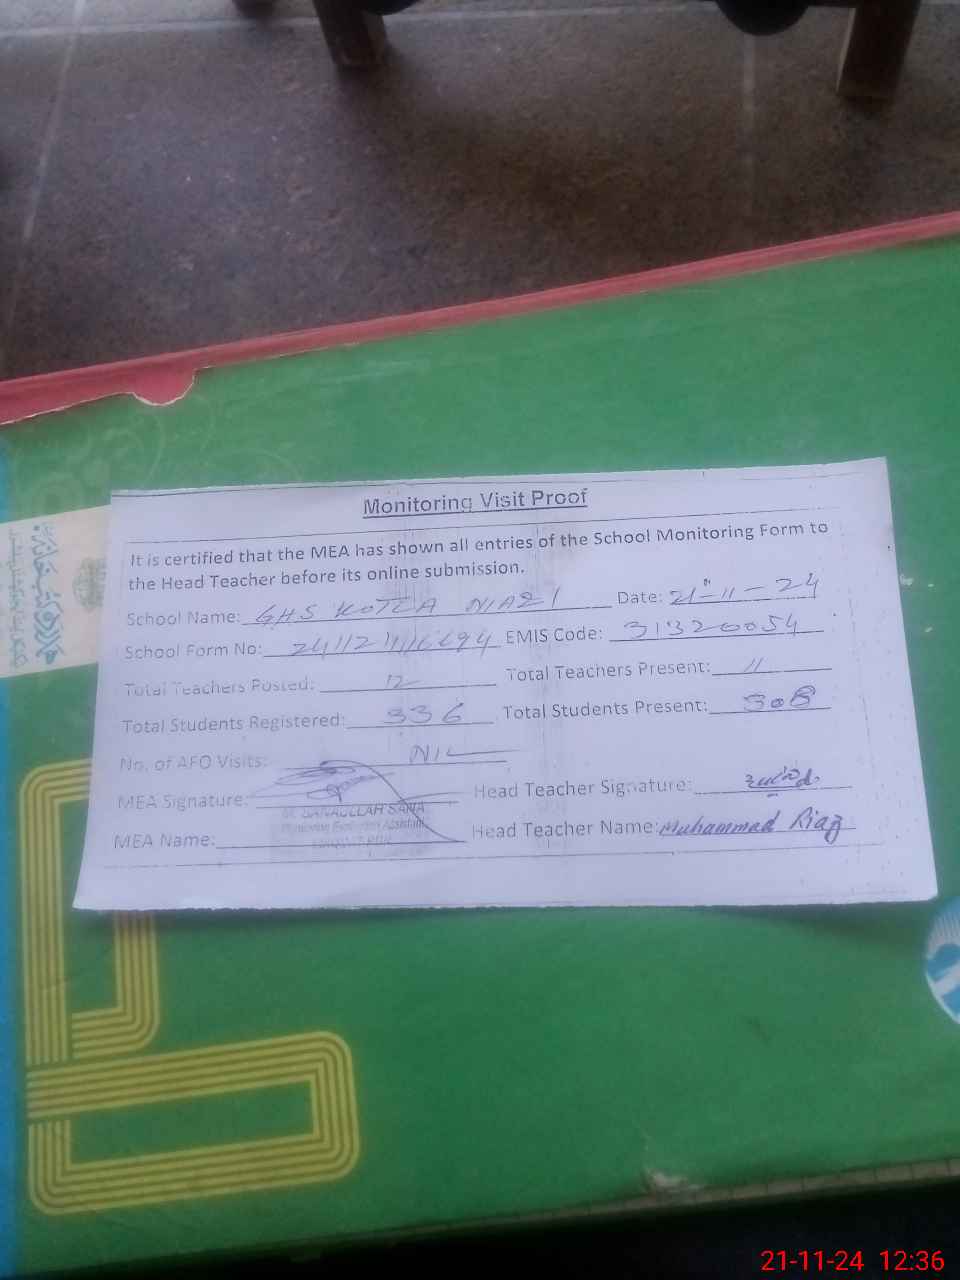 Monitoring Visit Proof
It is certified that the MEA has shown all entries of the School Monitoring Form to
the Head Teacher before its online submission.
School Name: GHS KOTLA NIAZI Date: 21-11-24
School Form No: EMIS Code: 31320054
Total Teachers Posted: 12 Total Teachers Present: 11
Total Students Registered: 336 Total Students Present: 308
No. of AFO Visits: NIL
MEA Signature: Head Teacher Signature:
M. SANAULLAH SANA
MEA Name: Head Teacher Name: Muhammad Riaz
21-11-24 12:36